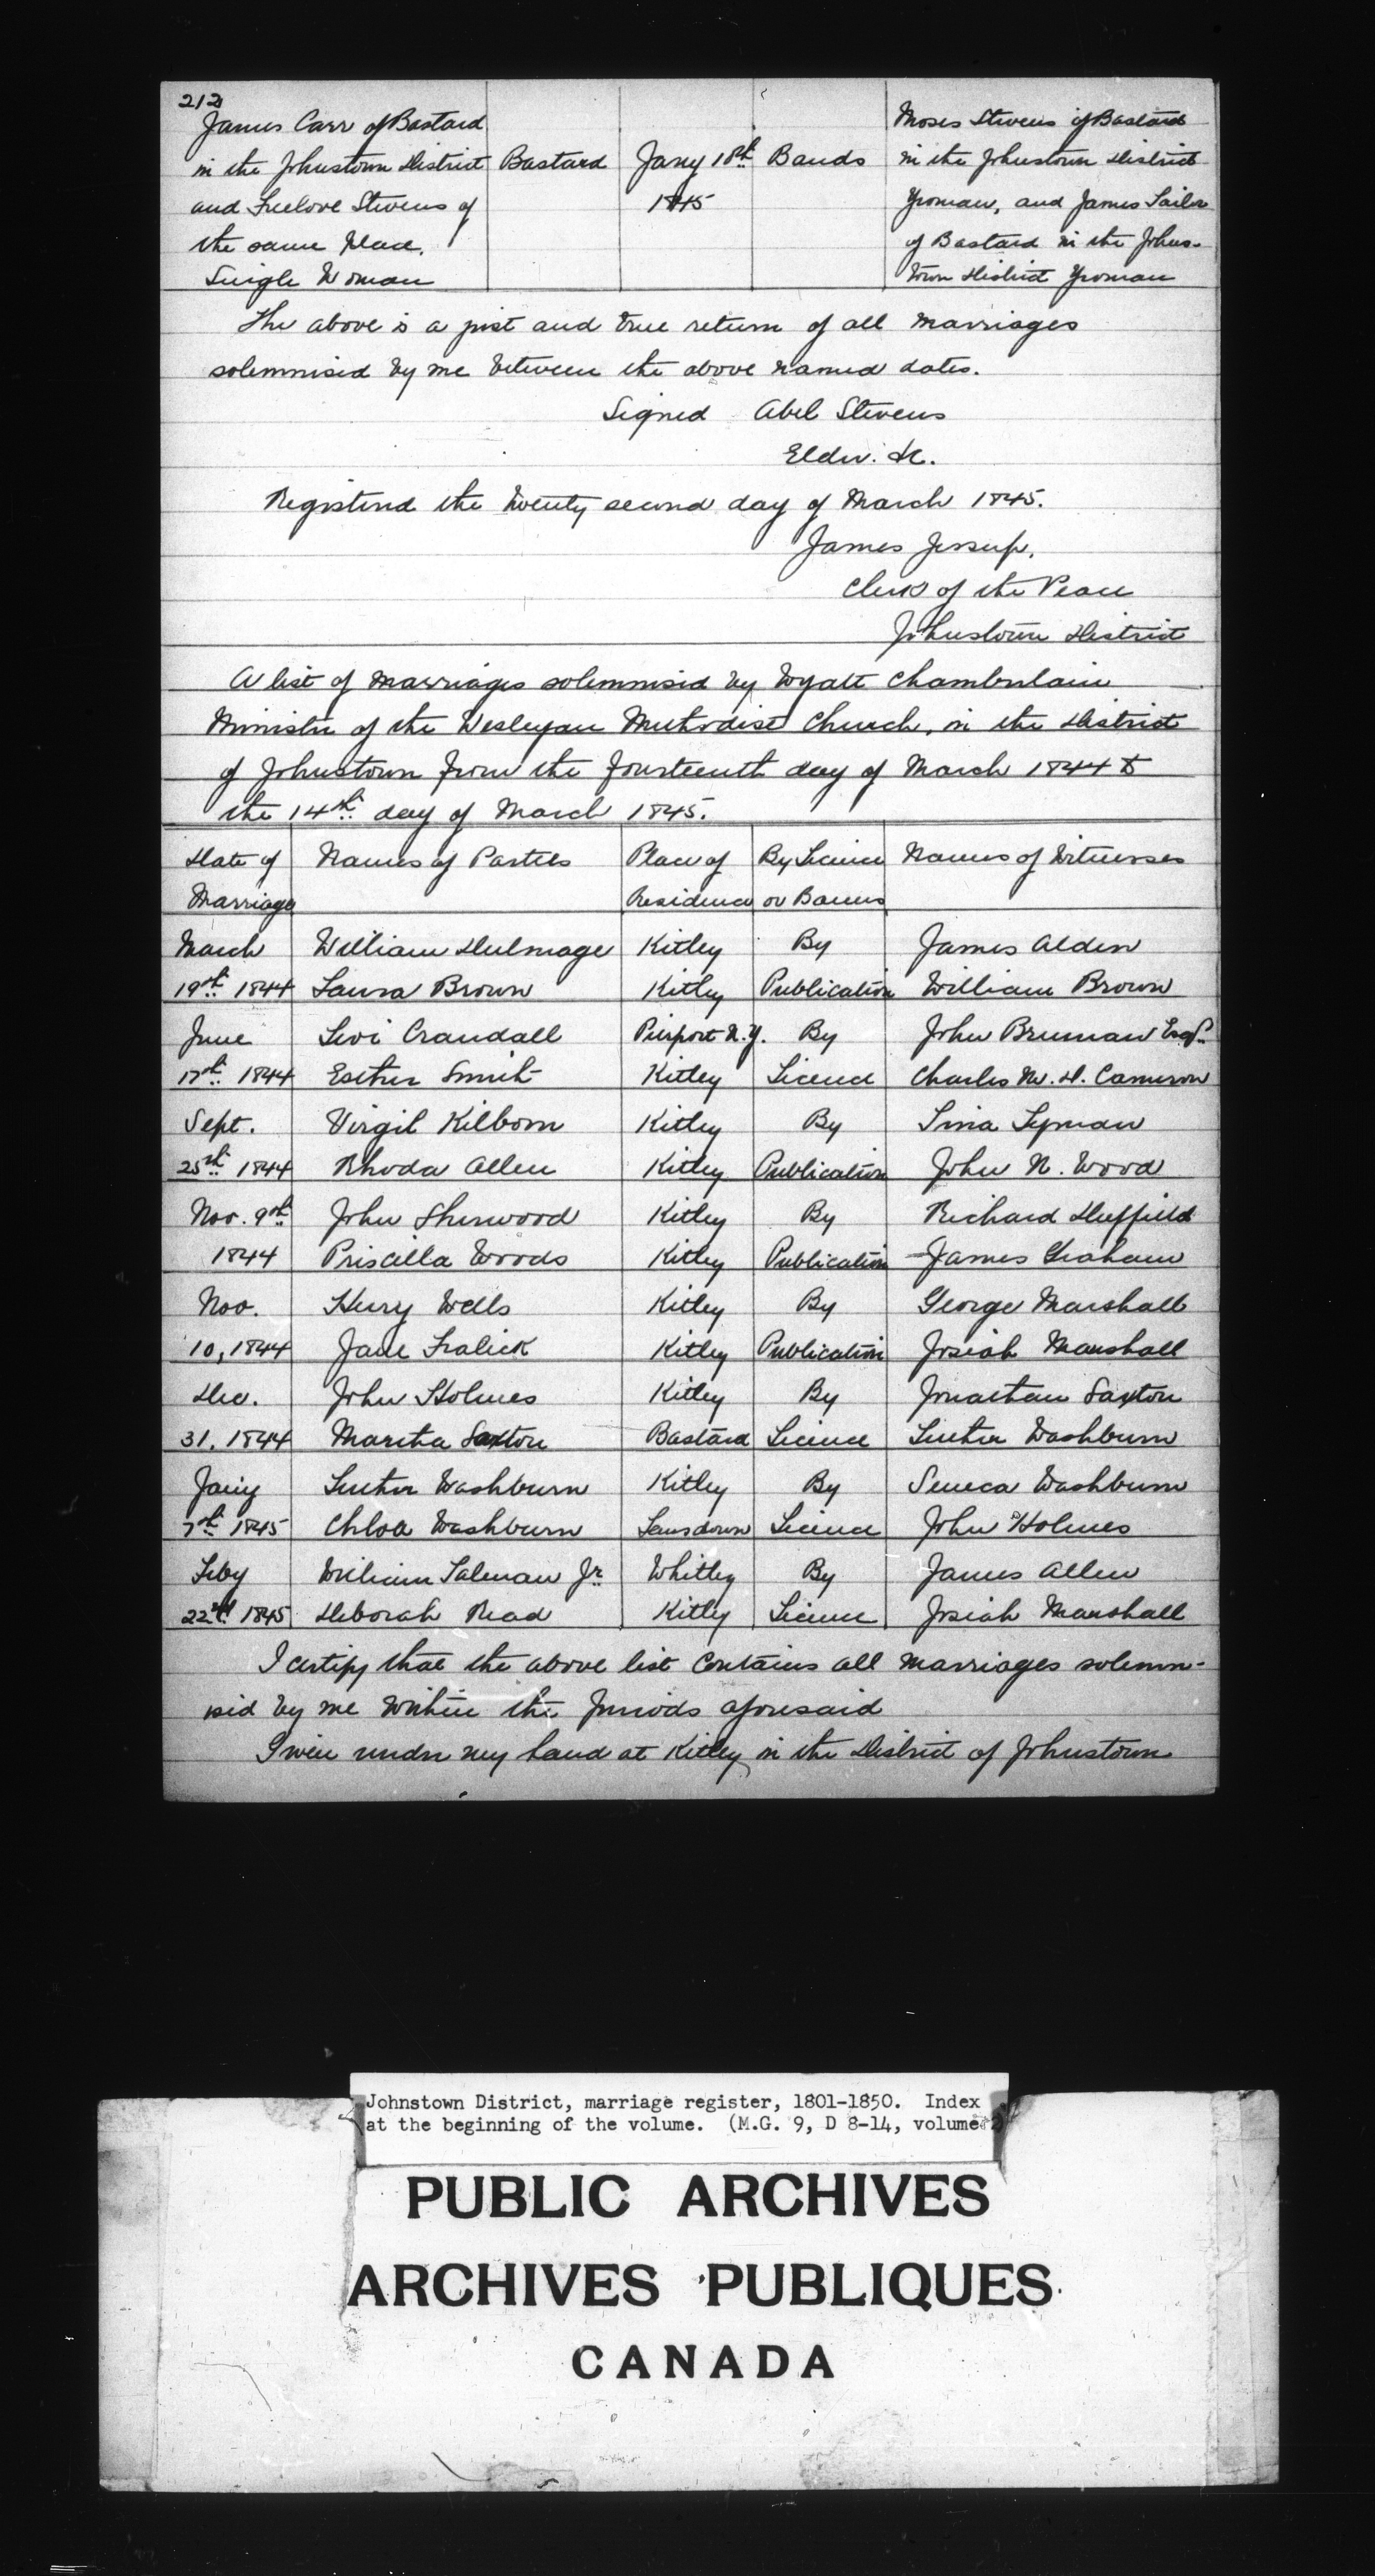 212
James Carr of Bastard
in the Johnstown District Bastard Jany 18th Bands
and Freelove Stevens of 1845
the same Place.
Single Woman
Moses Stevens of Bastard
in the Johnstown District
Yeoman, and James Sailor
of Bastard in the Johns-
town District Yeoman
The above is a just and true return of all marriages
solemnised by me between the above named dates.
Signed Abel Stevens
Elder. &c.
Registered the twenty second day of March 1845.
James Jessup,
Clerk of the Peace
Johnstown District
A list of Marriages solemnised by Wyatt Chamberlain
Minister of the Wesleyan Methodist Church, in the District
of Johnstown from the fourteenth day of March 1844 to
the 14th day of March 1845.
Date of Names of Parties Place of By Licence Names of Witnesses
Marriage Residence or Banns
March William Dulmage Kitley By James Alden
19th 1844 Laura Brown Kitley Publication William Brown
June Levi Crandall Pierport N.Y. By John Brennan Esqr.
17th 1844 Esther Smith Kitley Licence Charles W. H. Cameron
Sept. Virgil Kilborn Kitley By Lyman
25th 1844 Rhoda Allen Kitley Publication John N. Wood
Nov. 9th John Sherwood Kitley By Richard Duffield
1844 Priscilla Woods Kitley Publication James Graham
Nov. Henry Wells Kitley By George Marshall
10, 1844 Jane Fralick Kitley Publication Josiah Marshall
Dec. John Holmes Kitley By Jonathan Saxton
31, 1844 Martha Saxton Bastard Licence Luther Washburn
Jany Luther Washburn Kitley By Seneca Washburn
7th 1845 Chloa Washburn Lansdown Licence John Holmes
Feby William Talman Jr. Whitley By James Allen
22nd 1845 Deborah Read Kitley Licence Josiah Marshall
I certify that the above list contains all marriages solemn-
ised by me within the Periods aforesaid
Given under my hand at Kitley in the District of Johnstown
Johnstown District, marriage register, 1801-1850. Index
at the beginning of the volume. (M.G. 9, D 8-14, volume
PUBLIC ARCHIVES
ARCHIVES PUBLIQUES
CANADA